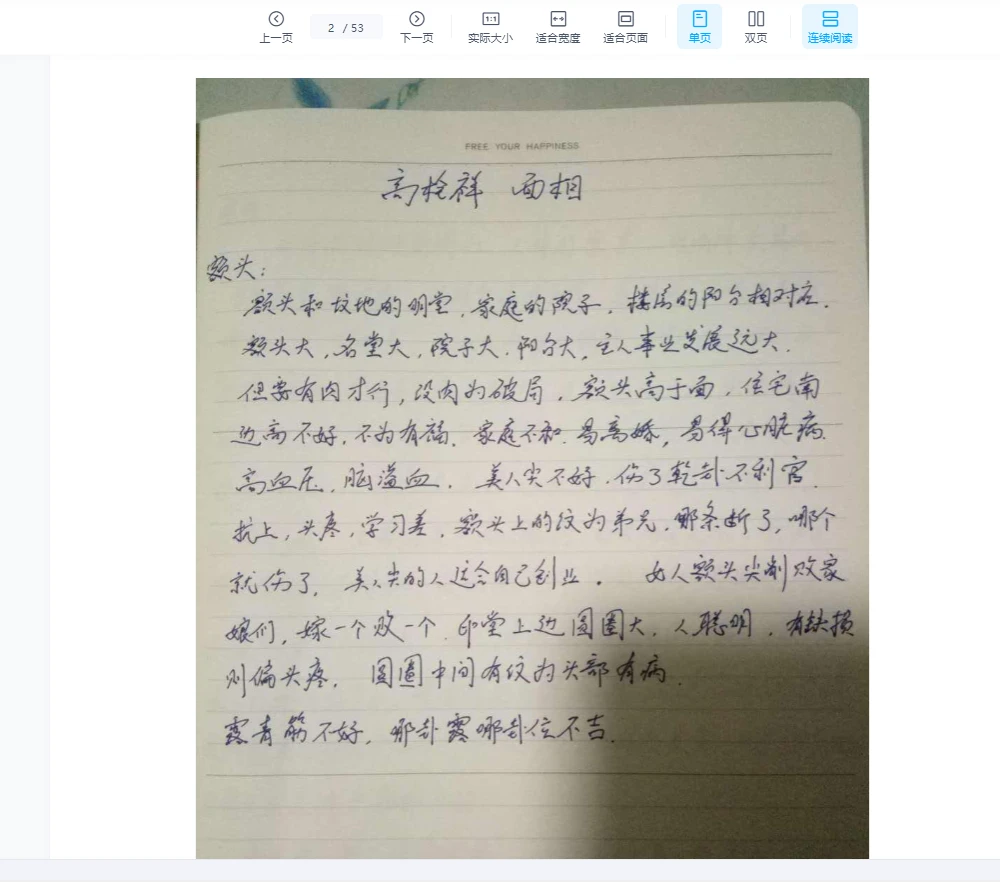 上一页
2 / 53
下一页
1:1
实际大小
适合宽度
适合页面
单页
双页
连续阅读
FREE YOUR HAPPINESS
高栓祥 面相
额头:
额头和坟地的明堂,家庭的院子,楼房的阳台相对应.
额头大,名堂大,院子大.阳台大,主人事业发展远大.
但要有肉才行,没肉为破局,额头高于面,住宅南
边高不好,不为有福.家庭不和.易离婚,易得心脏病.
高血压,脑溢血. 美人尖不好.伤了乾卦不利官.
抗上,头疼,学习差,额头上的纹为弟兄.那条断了,哪个
就伤了. 美人尖的人适合自己创业. 女人额头尖削败家
娘们,嫁一个败一个.印堂上边圆圈大.人聪明.有缺损
则偏头疼. 圆圈中间有纹为头部有病.
露青筋不好.哪卦露哪卦位不吉.